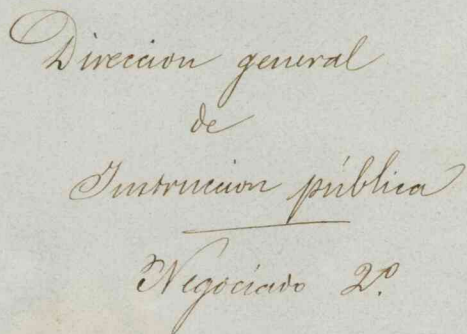 Direccion general
de
Instruccion pública
Negociado 2º